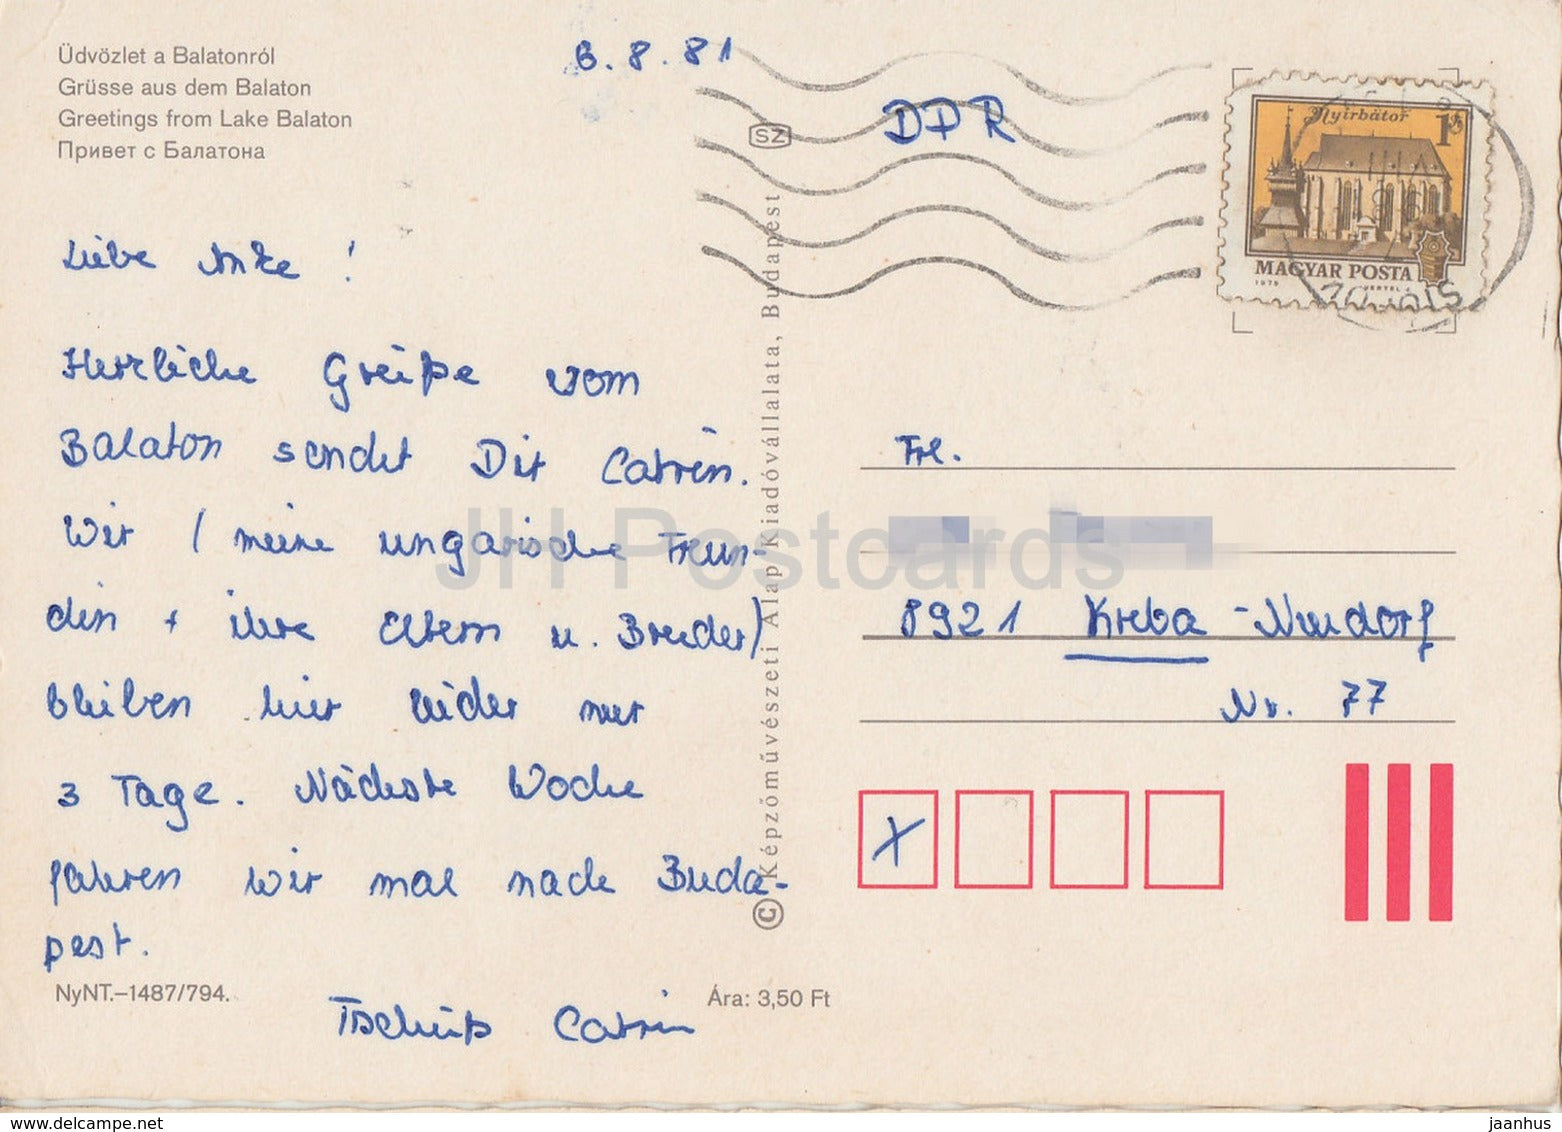 Üdvözlet a Balatonról
Grüsse aus dem Balaton
Greetings from Lake Balaton
Привет с Балатона
6.8.81
Liebe Anke !
Herzliche Grüße vom
Balaton sendet Dir Catrin.
Wir / meine ungarische Freun-
din + ihre Eltern u. Bruder/
bleiben hier leider nur
3 Tage. Nächste Woche
fahren wir mal nach Buda-
pest.
Tschüß Catrin
NyNT.–1487/794.
Ára: 3,50 Ft
SZ
© Képzőművészeti Alap Kiadóvállalata, Budapest
DDR
Nyírbátor
1 Ft
MAGYAR POSTA
1979 VERTEL J.
Frl.
8921 Kreba-Neudorf
Nr. 77
X
JH Postcards
www.delcampe.net
jaanhus